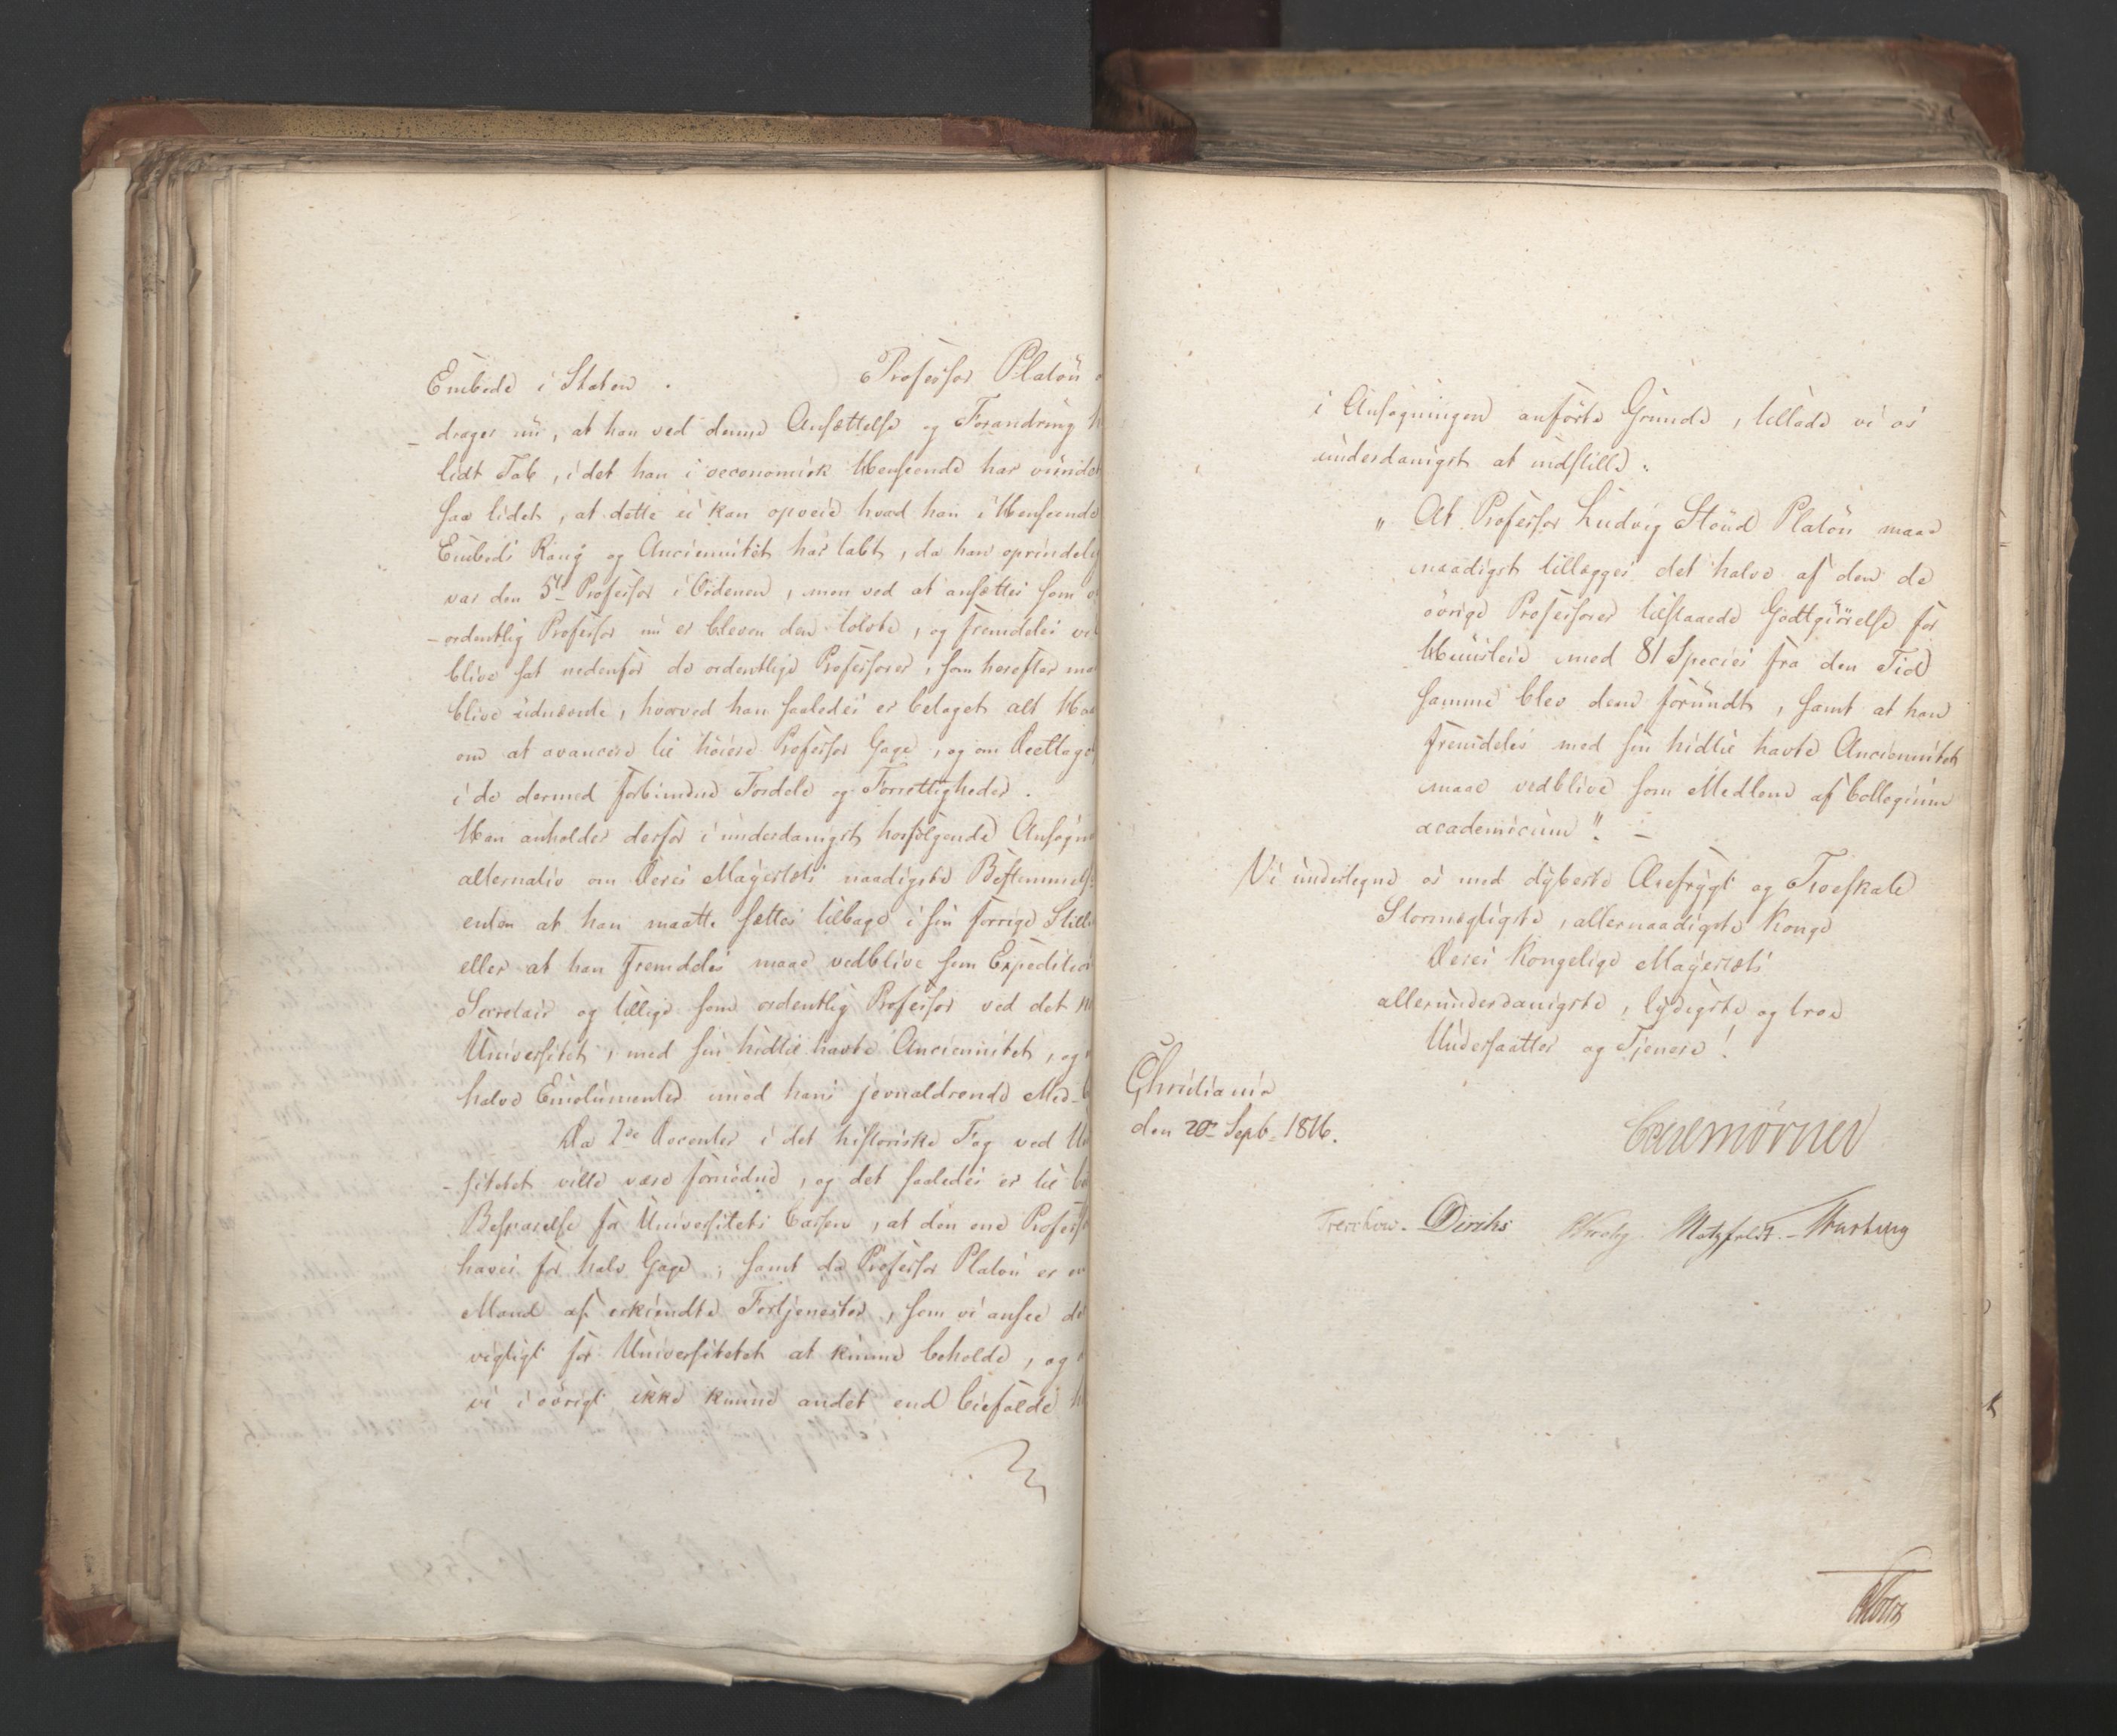 Embede i Staten. Professor Platou
drager nu, at han ved denne Ansættelse og Forandring
lidt Tab, i det han i oeconomisk Henseende har vundet
saa lidet, at dette ei kan opveie hvad han i Henseende
Embeds Rang og Anciennitet har tabt, da han oprindelig
var den 5te Professor i Ordenen, men ved at ansættes som
-ordentlig Professor nu er bleven den tolvte, og fremdeles vil
blive sat nedenfor de ordentlige Professorer, som herefter maa
blive udnævnte, hvorved han saaledes er betaget alt Haab
om at avancere til høiere Professor Gage, og om Deeltagelse
i de dermed forbundne Fordele og Forrettigheder.
Han anholder derfor i underdanigst hosfølgende Ansøgning
alternativ om Deres Mayestæts naadigste Bestemmelse
enten at han maatte sættes tilbage i sin forrige Stilling
eller at han fremdeles maae vedblive som Expeditions
Secretair og tillige som ordentlig Professor ved det
Universitet, med sin hidtil havte Anciennitet, og
halve Emolumenter imod hans jevnaldrende Med-
Da 2de Docenter i det historiske Fag ved Uni
-sitetet ville være fornødne, og det saaledes er til
Besparelse for Universitets Cassen, at den ene Professor
haves for halv Gage; samt da Professor Platou er en
Mand af erkiendte Fortjenester, som vi ansee det
vigtigt for Universitetet at kunne beholde, og
vi i øvrigt ikke kunne andet end biefalde
i Ansøgningen anførte Grunde, tillade vi os
underdanigst at indstille:
" At Professor Ludvig Stoud Platou maae
naadigst tillægges det halve af den de
øvrige Professorer tilstaaede Godtgiørelse for
Huusleie med 81 Species fra den Tid
samme blev dem forundt, samt at han
fremdeles med sin hidtil havte Anciennitet
maae vedblive som Medlem af Collegium
academicum". -
Vi undertegne os med dybeste Ærefrygt og Troeskab
Stormægtigste, allernaadigste Konge
Deres Kongelige Mayestæts
allerunderdanigste, lydigste og troe
Undersaatter og Tjenere!
Christiania
den 20de Septb. 1816.
Mørner
Treschow. Diriks Krohg Motzfeldt. - Harbing